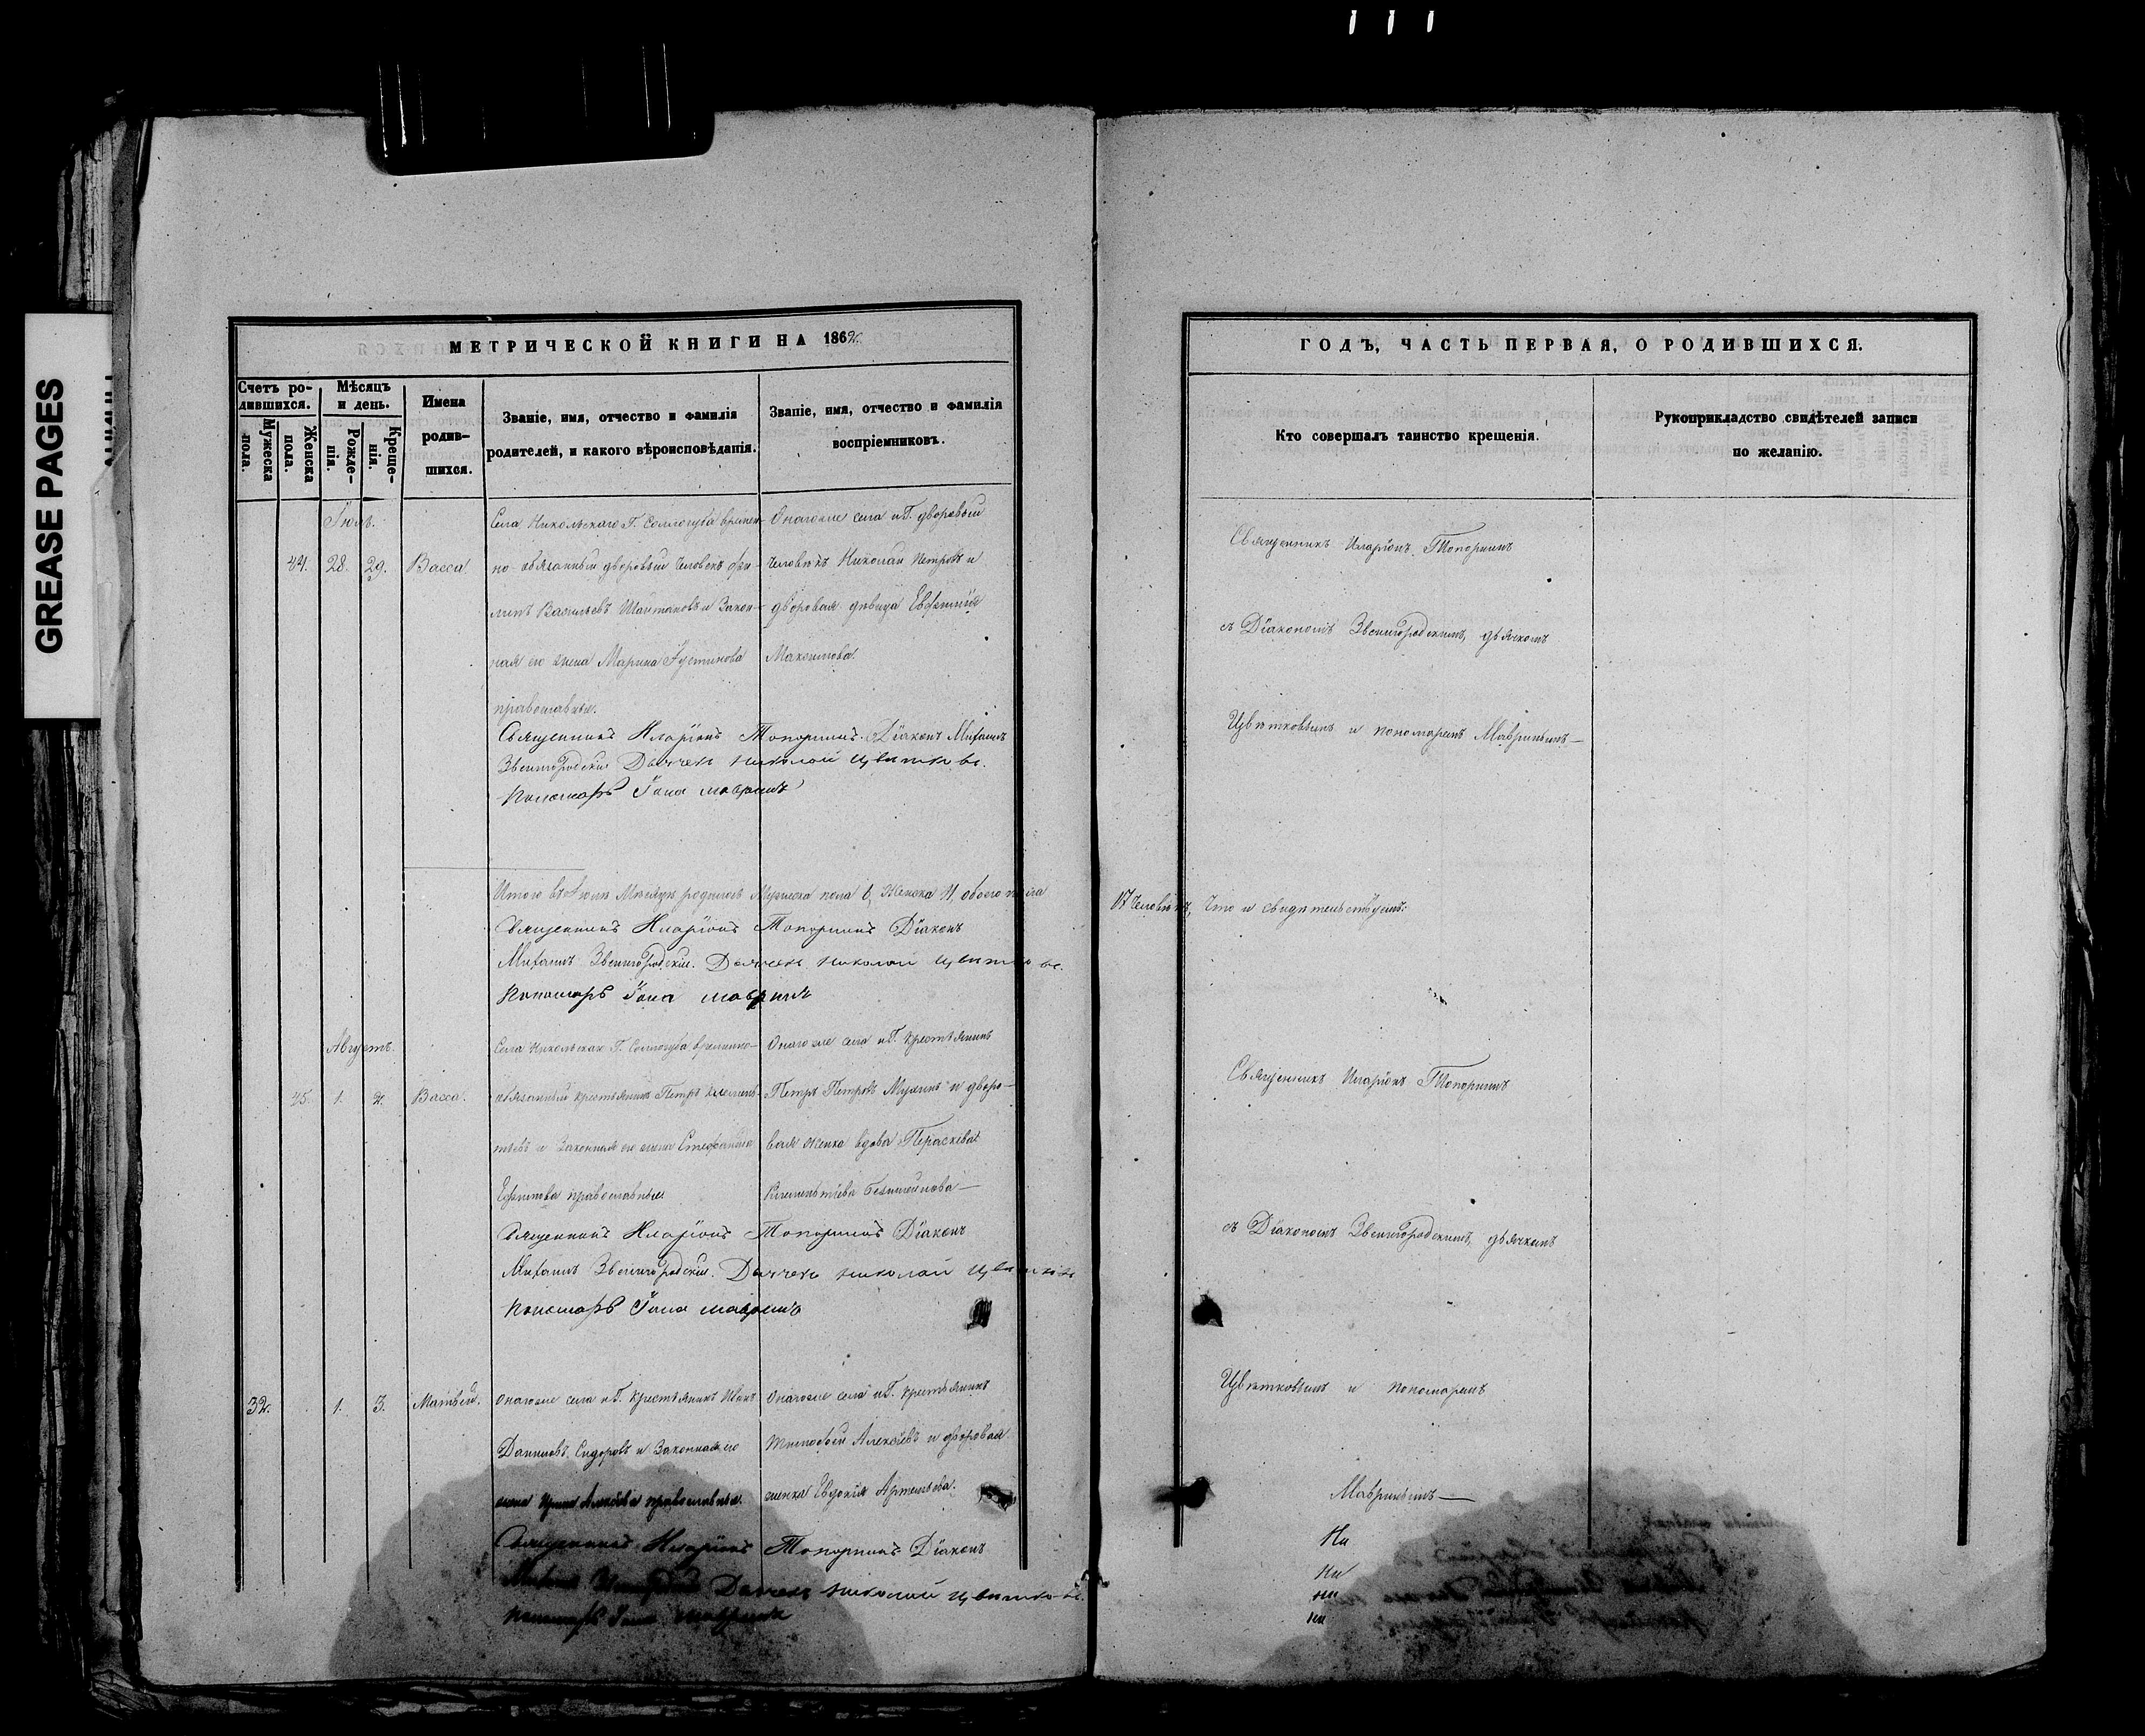 GREASE PAGES
МЕТРИЧЕСКОЙ КНИГИ НА 1862
Счетъ ро-
дившихся.
Мужеска
пола.
Женска
пола.
Мѣсяцъ
и день.
Рожде-
нія.
Креще-
нія.
Имена
родив-
шихся.
Званіе, имя, отчество и фамилія
родителей, и какого вѣроисповѣданія.
Званіе, имя, отчество и фамилія
воспріемниковъ.
Іюль.
44. 28. 29. Васса
Села Никольскаго Г. Соллогуба времен-
но-обязанный дворовый человекъ
Васильевъ и Закон-
ная его жена Марина Іустинова
православные.
Онагоже села и Г. дворовый
человѣкъ Николай Петровъ и
дворовая девица Евфимія
Максимова.
Священникъ Иларіонъ Топорнинъ Діаконъ Михаилъ
Звенигородскій Дьячекъ Николай Цвѣтковъ.
Пономарь Іона Мавринъ
Итого въ Іюлѣ Месяцѣ родилось Мужеска пола 6, Женска 11, обоего пола
Священникъ Иларіонъ Топорнинъ Діаконъ
Михаилъ Звенигородскій. Дьячекъ Николай Цвѣтковъ.
Пономарь Іона Мавринъ
Августъ.
45. 1. 2. Васса.
Села Никольскаго Г. Соллогуба временно-
обязанный крестьянинъ Петръ Клемень-
тьевъ и Законная его жена Стефанида
Ефимова православные
Онагоже села и Г. крестьянинъ
Петръ Петровъ Мухинъ и дворо-
вая женка вдова Параскева
Клементіева
Священникъ Иларіонъ Топорнинъ Діаконъ
Михаилъ Звенигородскій. Дьячекъ Николай Цвѣтковъ
Пономарь Іона Мавринъ
32. 1. 3. Матвей.
Онагоже села и Г. крестьянинъ Иванъ
Даниловъ Сидоровъ и Законная его
жена православные.
Онагоже села и Г. крестьянинъ
Тимофей Алексѣевъ и дворовая
женка Евдокія Артемьева.
Священникъ Иларіонъ Топорнинъ Діаконъ
Дьячекъ Николай Цвѣтковъ.
Пономарь Іона Мавринъ
ГОДЪ, ЧАСТЬ ПЕРВАЯ, О РОДИВШИХСЯ.
Кто совершалъ таинство крещенія.
Рукоприкладство свидѣтелей записи
по желанію.
Священникъ Иларіонъ Топорнинъ
съ Діакономъ Звенигородскимъ, дьячкомъ
Цвѣтковымъ и пономаремъ Мавринымъ—
17 человѣкъ, Что и свидѣтельствуемъ:
Священникъ Иларіонъ Топорнинъ
съ Діакономъ Звенигородскимъ, дьячкомъ
Цвѣтковымъ и пономаремъ
Мавринымъ—